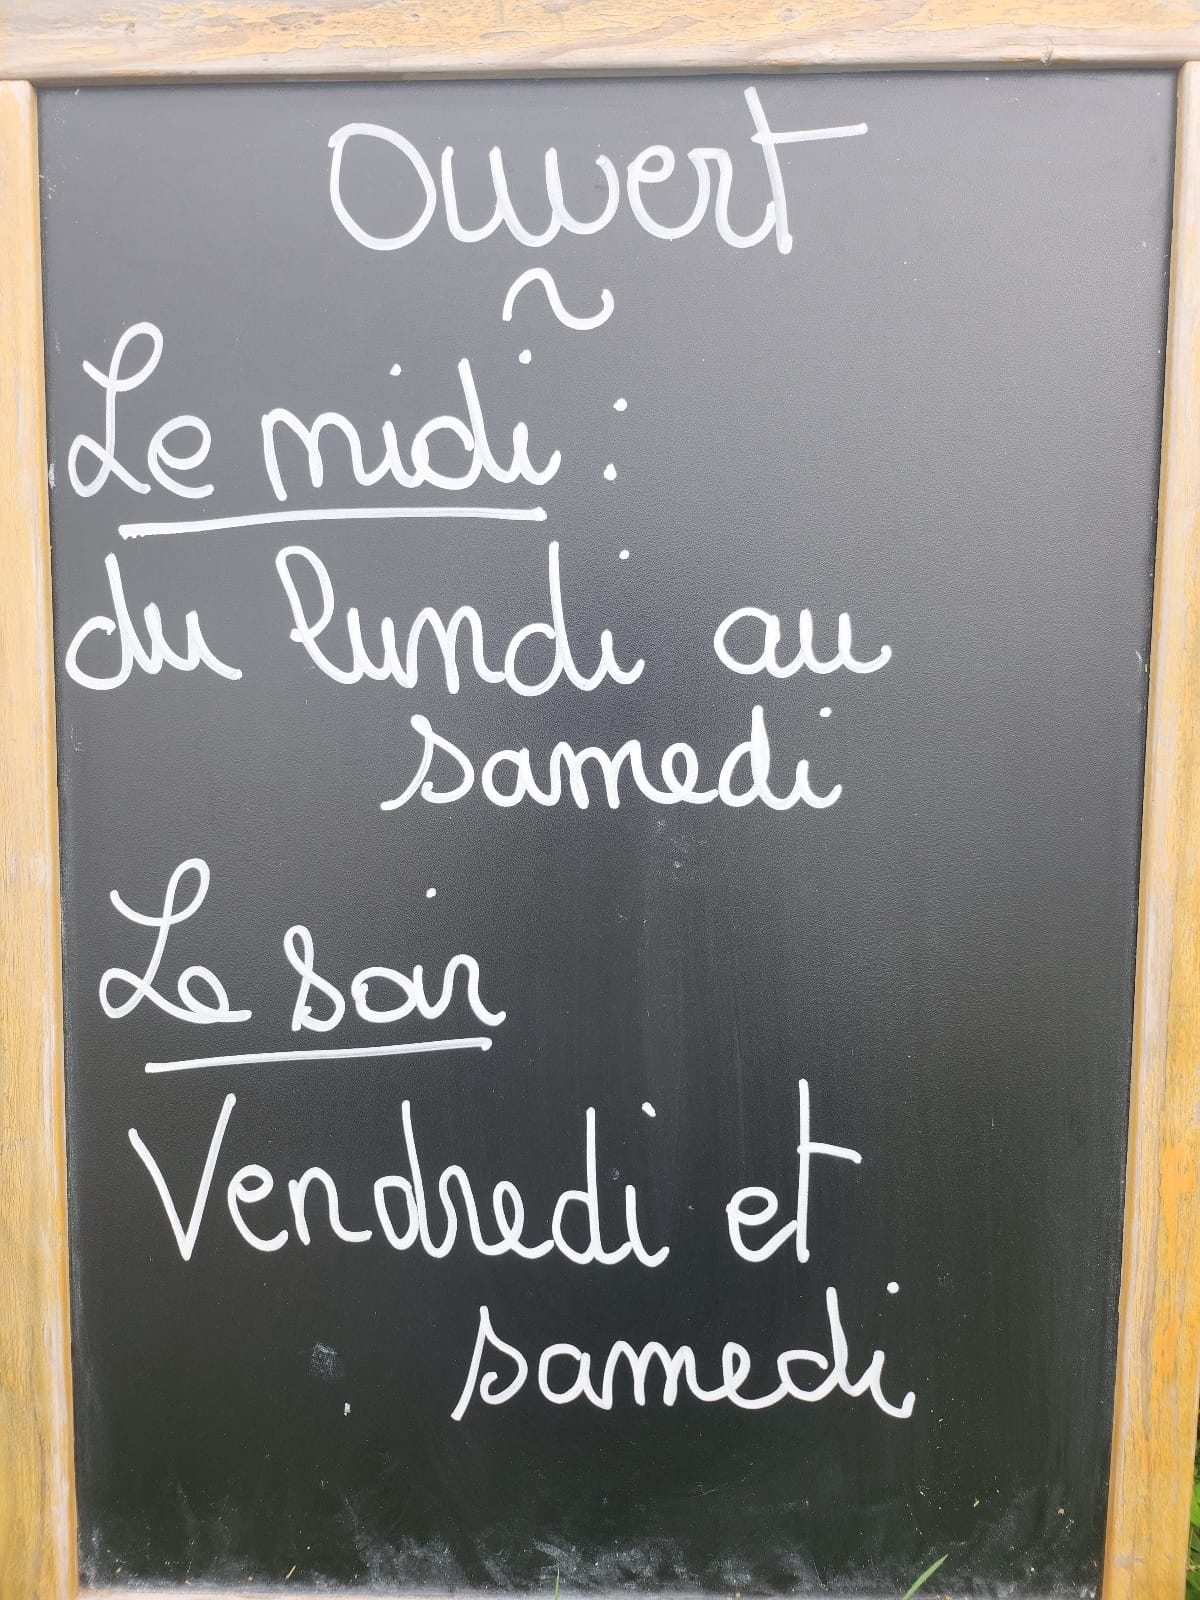 Ouvert
~
Le midi :
du lundi au
samedi
Le soir
Vendredi et
samedi